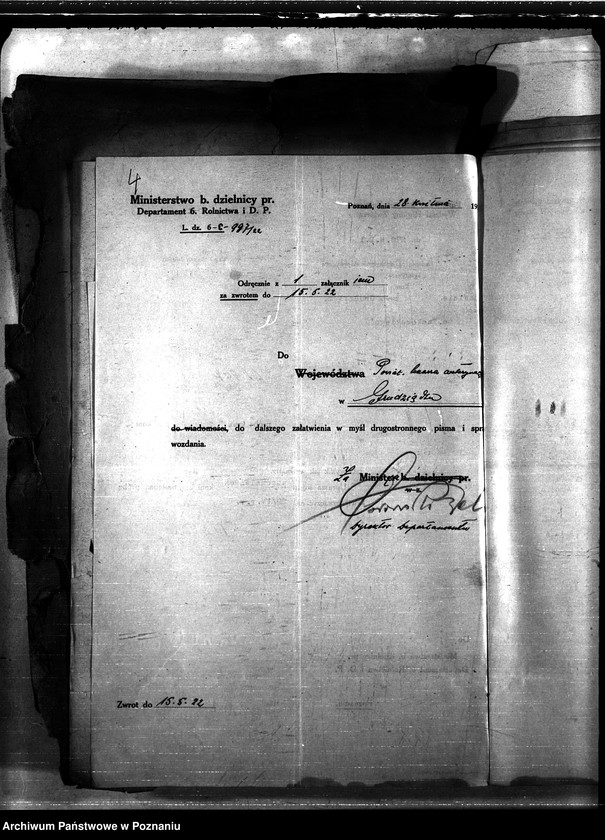 4
Ministerstwo b. dzielnicy pr.
Departament 6. Rolnictwa i D. P.
Poznań, dnia 28 kwietnia 19
L. dz. 6-C-997/22
Odręcznie z 1 załącznik iem
za zwrotem do 15. 5. 22
Do
Województwa Powiat.
w Grudziądzu
do wiadomości, do dalszego załatwienia w myśl drugostronnego pisma i spr
wozdania.
Za Minister b. dzielnicy pr.
w z.
Dyrektor Departamentu
Zwrot do 15. 5. 22
Archiwum Państwowe w Poznaniu